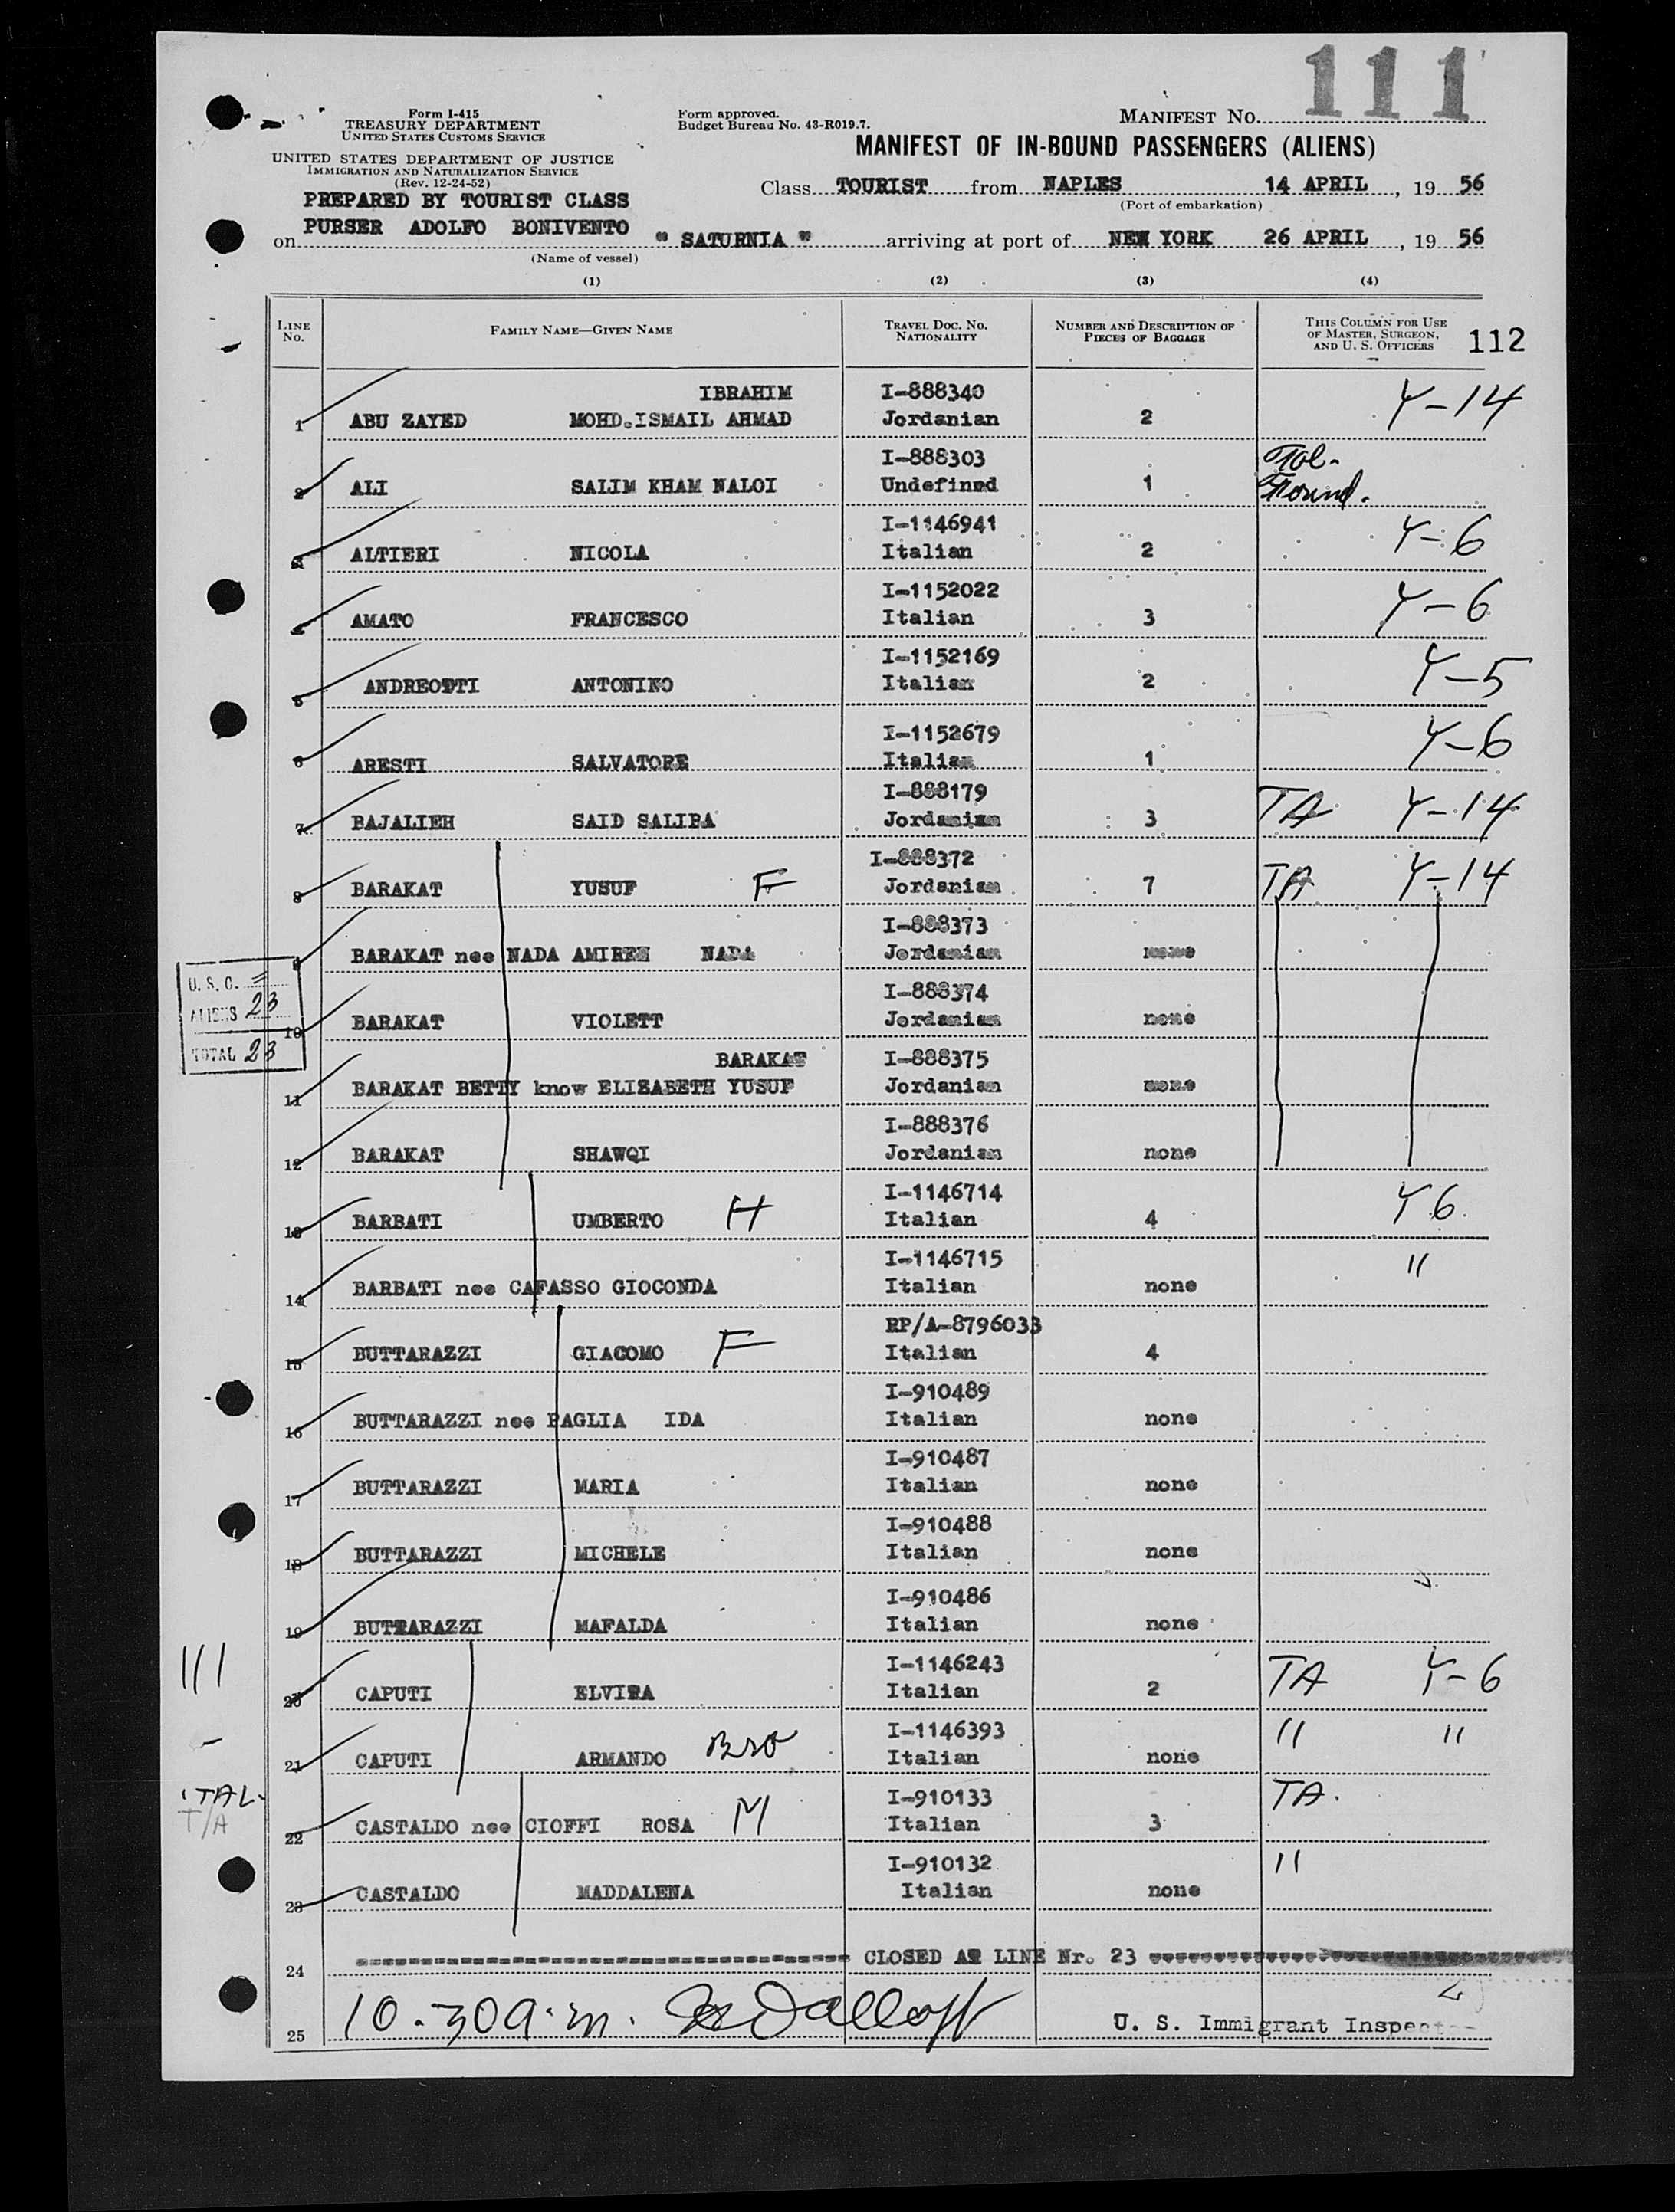 111
Form I-415
TREASURY DEPARTMENT
UNITED STATES CUSTOMS SERVICE
UNITED STATES DEPARTMENT OF JUSTICE
IMMIGRATION AND NATURALIZATION SERVICE
(Rev. 12-24-52)
Form approved.
Budget Bureau No. 43-R019.7.
MANIFEST NO.
MANIFEST OF IN-BOUND PASSENGERS (ALIENS)
Class TOURIST from NAPLES 14 APRIL, 19 56
(Port of embarkation)
PREPARED BY TOURIST CLASS
PURSER ADOLFO BONIVENTO
on " SATURNIA " arriving at port of NEW YORK 26 APRIL, 19 56
(Name of vessel)
(1) (2) (3) (4)
LINE NO. FAMILY NAME—GIVEN NAME TRAVEL DOC. NO. NATIONALITY NUMBER AND DESCRIPTION OF PIECES OF BAGGAGE THIS COLUMN FOR USE OF MASTER, SURGEON, AND U. S. OFFICERS 112
IBRAHIM I-888340
1 ABU ZAYED MOHD.ISMAIL AHMAD Jordanian 2 Y-14
I-888303
2 ALI SALIM KHAM NALOI Undefined 1 Found.
I-1146941
3 ALTIERI NICOLA Italian 2 Y-6
I-1152022
4 AMATO FRANCESCO Italian 3 Y-6
I-1152169
5 ANDREOTTI ANTONINO Italian 2 Y-5
I-1152679
6 ARESTI SALVATORE Italian 1 Y-6
I-888179
7 BAJALIEH SAID SALIBA Jordanian 3 TA Y-14
I-888372
8 BARAKAT YUSUF F Jordanian 7 TA Y-14
I-888373
9 BARAKAT nee NADA AMIREH NADA Jordanian none
I-888374
10 BARAKAT VIOLETT Jordanian none
BARAKAT I-888375
11 BARAKAT BETTY know ELIZABETH YUSUF Jordanian none
I-888376
12 BARAKAT SHAWQI Jordanian none
I-1146714
13 BARBATI UMBERTO H Italian 4 Y 6
I-1146715
14 BARBATI nee CAFASSO GIOCONDA Italian none "
RP/A-8796033
15 BUTTARAZZI GIACOMO F Italian 4
I-910489
16 BUTTARAZZI nee PAGLIA IDA Italian none
I-910487
17 BUTTARAZZI MARIA Italian none
I-910488
18 BUTTARAZZI MICHELE Italian none
I-910486
19 BUTTARAZZI MAFALDA Italian none
I-1146243
20 CAPUTI ELVIRA Italian 2 TA Y-6
I-1146393
21 CAPUTI ARMANDO Bro Italian none " "
I-910133
22 CASTALDO nee CIOFFI ROSA M Italian 3 TA.
I-910132
23 CASTALDO MADDALENA Italian none "
24 CLOSED AT LINE Nr. 23
25 10.30 a.m. U. S. Immigrant Inspector
U. S. C.
ALIENS 23
TOTAL 23
111
TAL
T/A